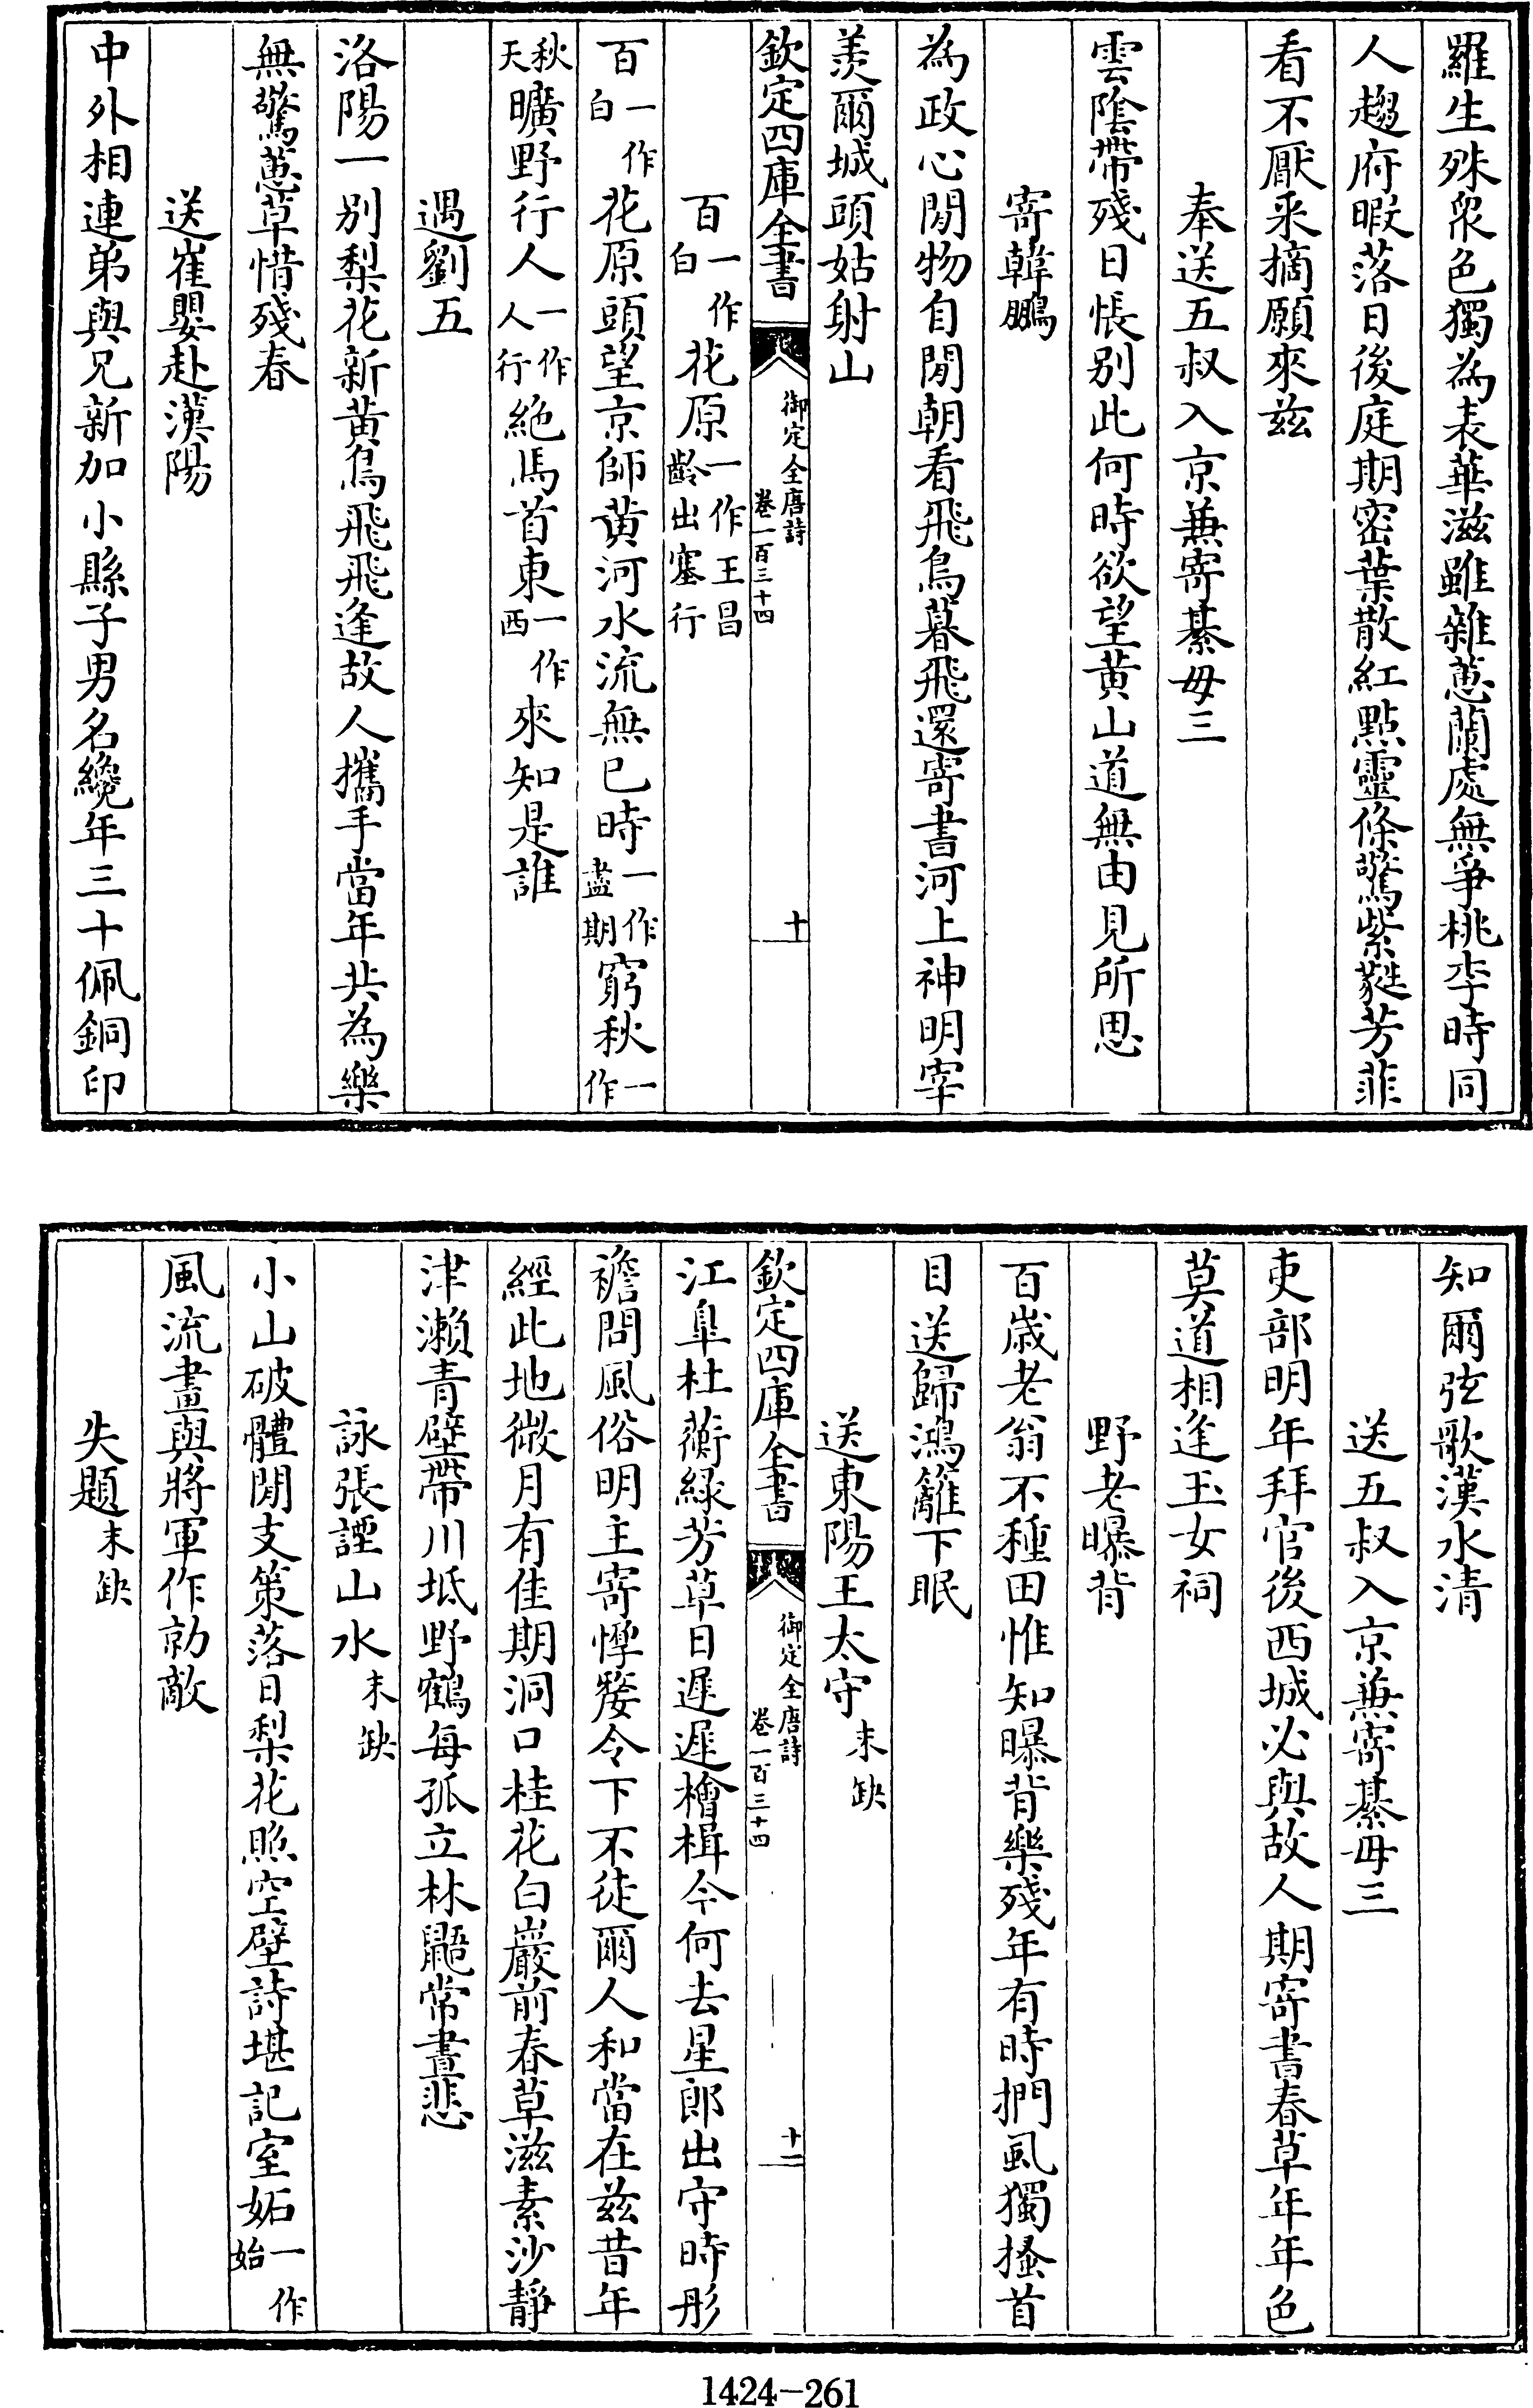 羅生殊衆色獨為表華滋雖雜蕙蘭處無爭桃李時同
人趨府暇落日後庭期密葉散紅點靈條驚紫蕤芳菲
看不厭采摘願來兹
奉送五叔入京兼寄綦毋三
雲陰帶殘日悵别此何時欲望黄山道無由見所思
寄韓鵬
為政心閒物自閒朝看飛鳥暮飛還寄書河上神明宰
羡爾城頭姑射山
欽定四庫全書 御定全唐詩 卷一百三十四 十
百一作白花原一作王昌齡出塞行
百一作白花原頭望京師黄河水流無已時一作盡期窮秋一作
秋天曠野行人一作人行絶馬首東一作西來知是誰
遇劉五
洛陽一别梨花新黄鳥飛飛逢故人攜手當年共為樂
無驚蕙草惜殘春
送崔嬰赴漢陽
中外相連弟與兄新加小縣子男名纔年三十佩銅印
知爾弦歌漢水清
送五叔入京兼寄綦毋三
吏部明年拜官後西城必與故人期寄書春草年年色
莫道相逢玉女祠
野老曝背
百歲老翁不種田惟知曝背樂殘年有時捫虱獨搔首
目送歸鴻籬下眠
送東陽王太守末缺
欽定四庫全書 御定全唐詩 卷一百三十四 十一
江臯杜蘅緑芳草日遲遲檜楫今何去星郎出守時彤
襜問風俗明主寄惸嫠令下不徒爾人和當在兹昔年
經此地微月有佳期洞口桂花白巖前春草滋素沙靜
津瀨青壁帶川坻野鶴每孤立林鼯常晝悲
詠張諲山水末缺
小山破體閒支策落日梨花照空壁詩堪記室妬一作始
風流畫與將軍作勍敵
失題末缺
1424-261